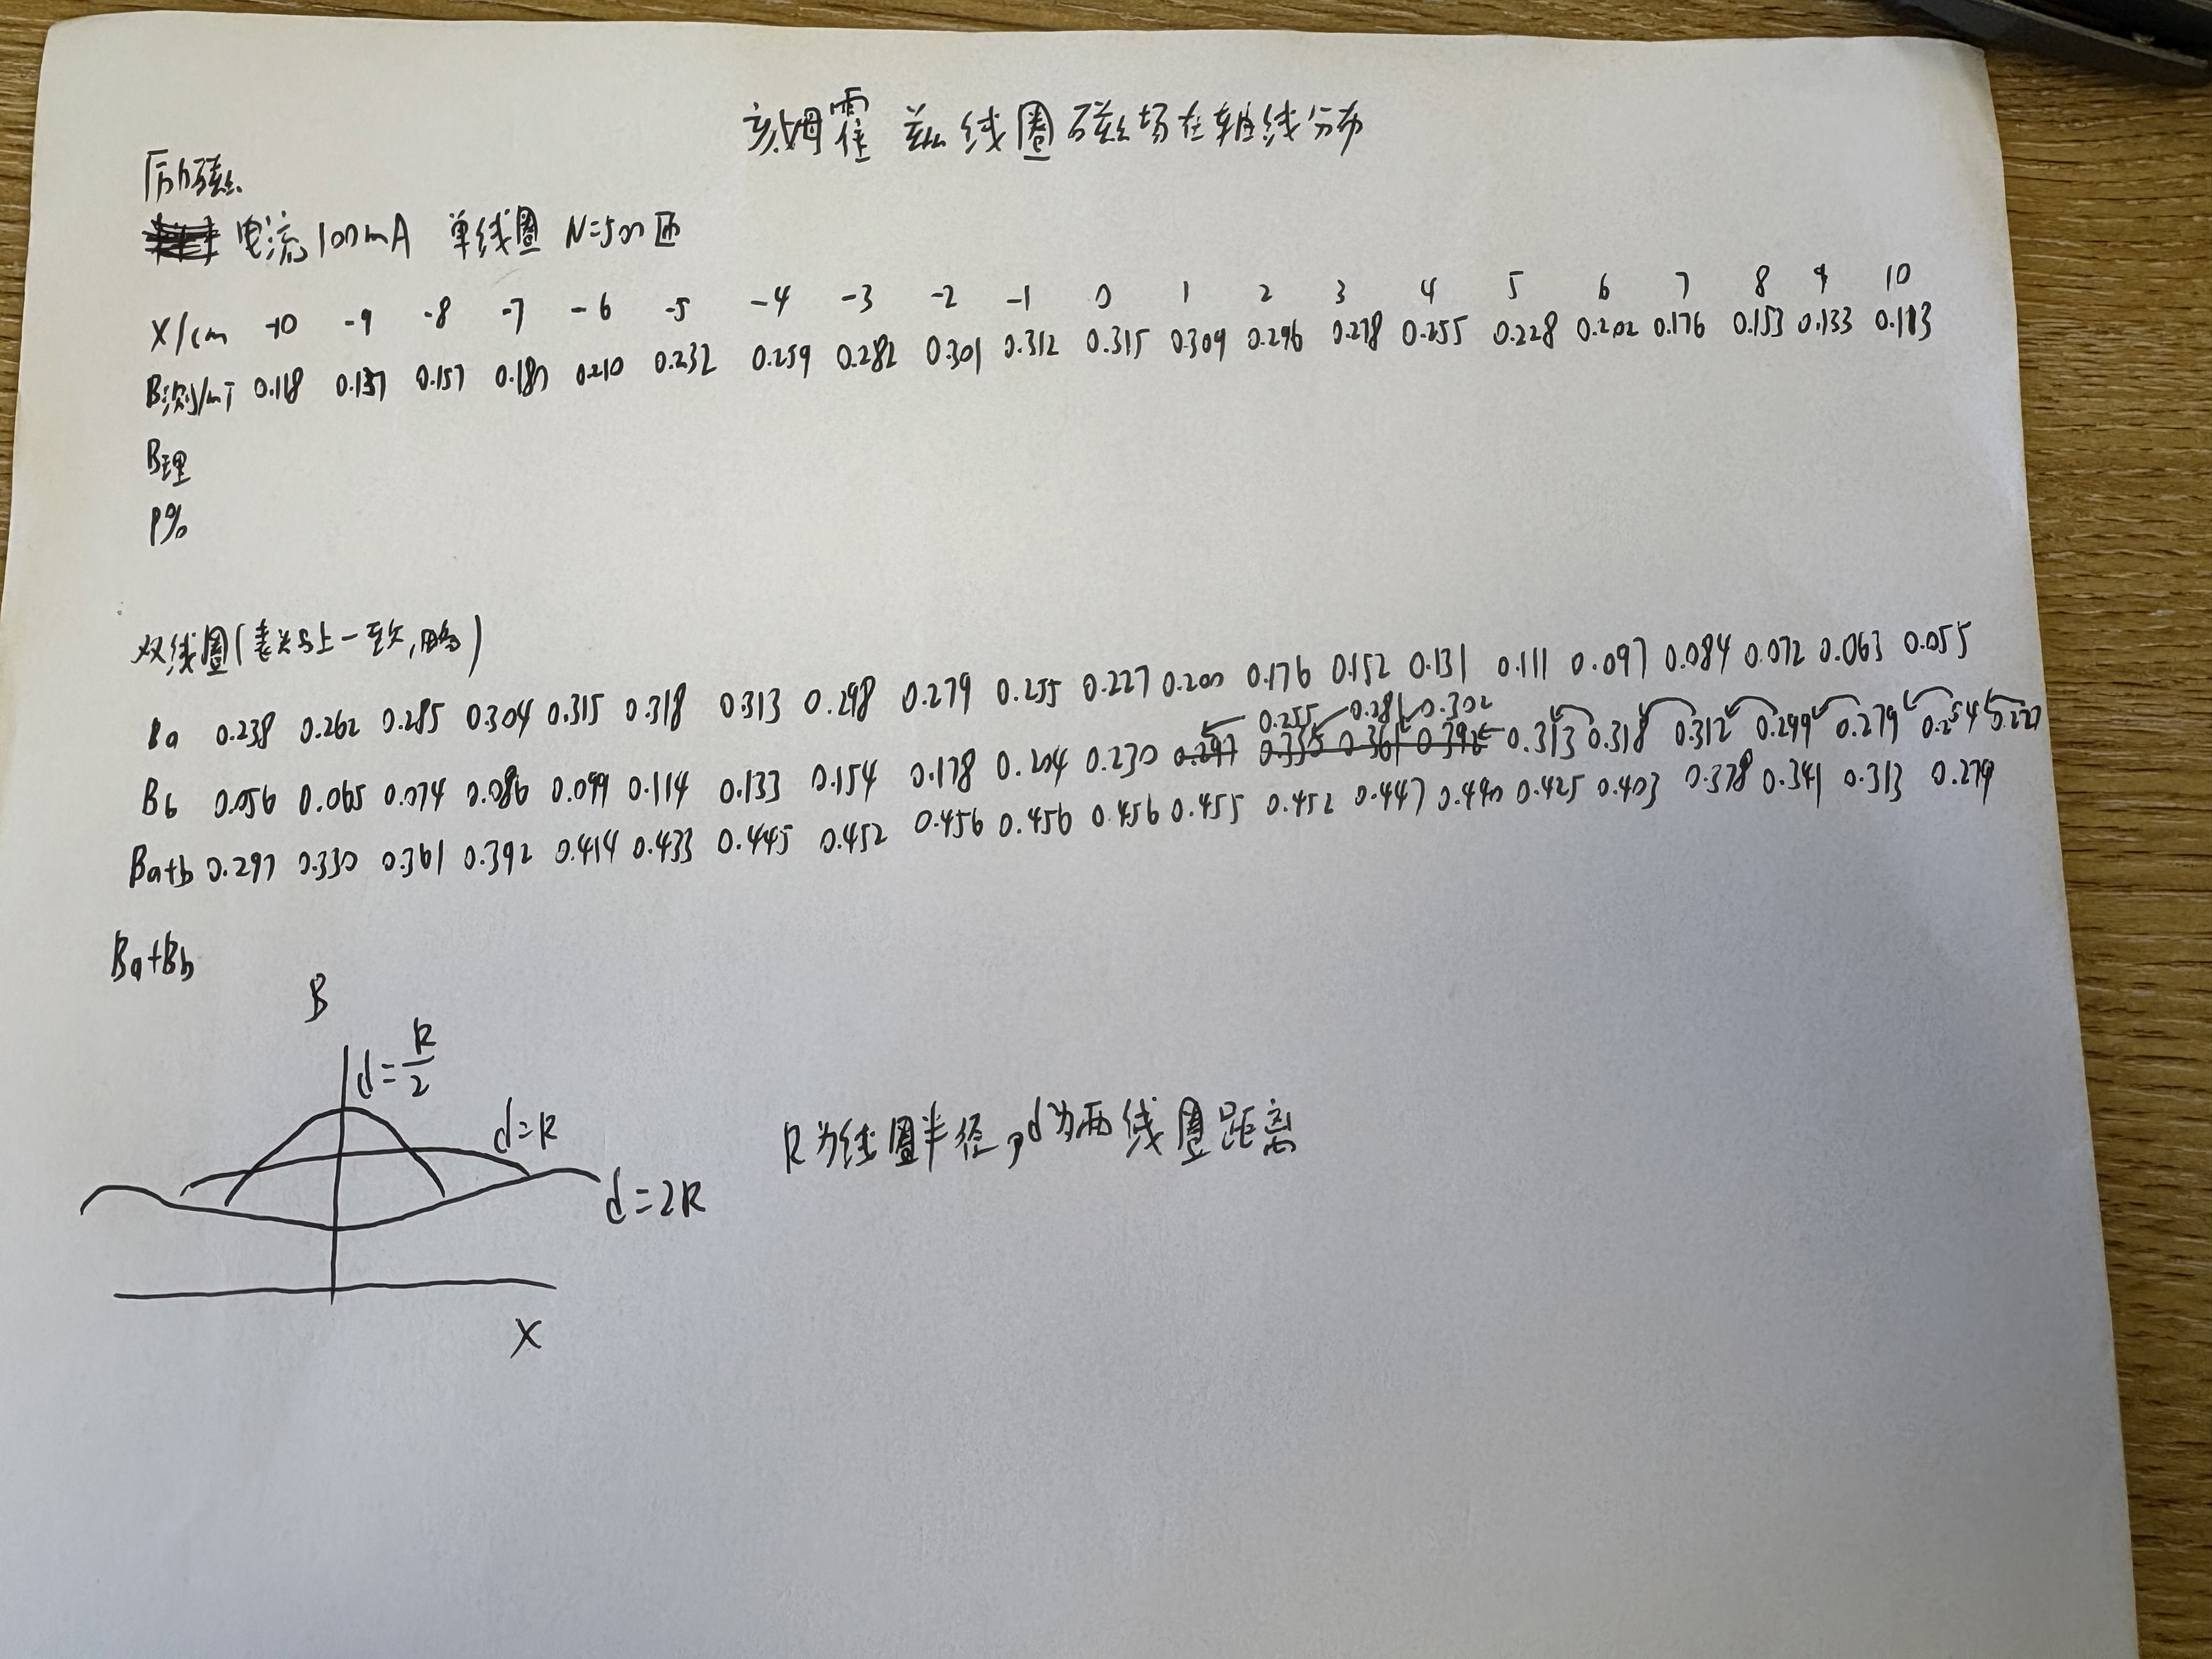 亥姆霍兹线圈磁场在轴线分布
励磁
电流100mA 单线圈 N=500匝
X/cm -10 -9 -8 -7 -6 -5 -4 -3 -2 -1 0 1 2 3 4 5 6 7 8 9 10
B测/mT 0.118 0.137 0.157 0.180 0.210 0.232 0.259 0.282 0.301 0.312 0.315 0.309 0.296 0.278 0.255 0.228 0.202 0.176 0.153 0.133 0.113
B理
P%
双线圈(表头与上一致,略)
Ba 0.238 0.262 0.285 0.304 0.315 0.318 0.313 0.298 0.279 0.255 0.227 0.200 0.176 0.152 0.131 0.111 0.097 0.084 0.072 0.063 0.055
0.255 0.281 0.302
Bb 0.056 0.065 0.074 0.086 0.099 0.114 0.133 0.154 0.178 0.204 0.230 0.297 0.335 0.361 0.392 0.313 0.318 0.312 0.299 0.279 0.254 0.227
Ba+b 0.297 0.330 0.361 0.392 0.414 0.433 0.445 0.452 0.456 0.456 0.456 0.455 0.452 0.447 0.440 0.425 0.403 0.378 0.341 0.313 0.279
Ba+Bb
B
d=R/2
d=R
d=2R
X
R为线圈半径,d为两线圈距离